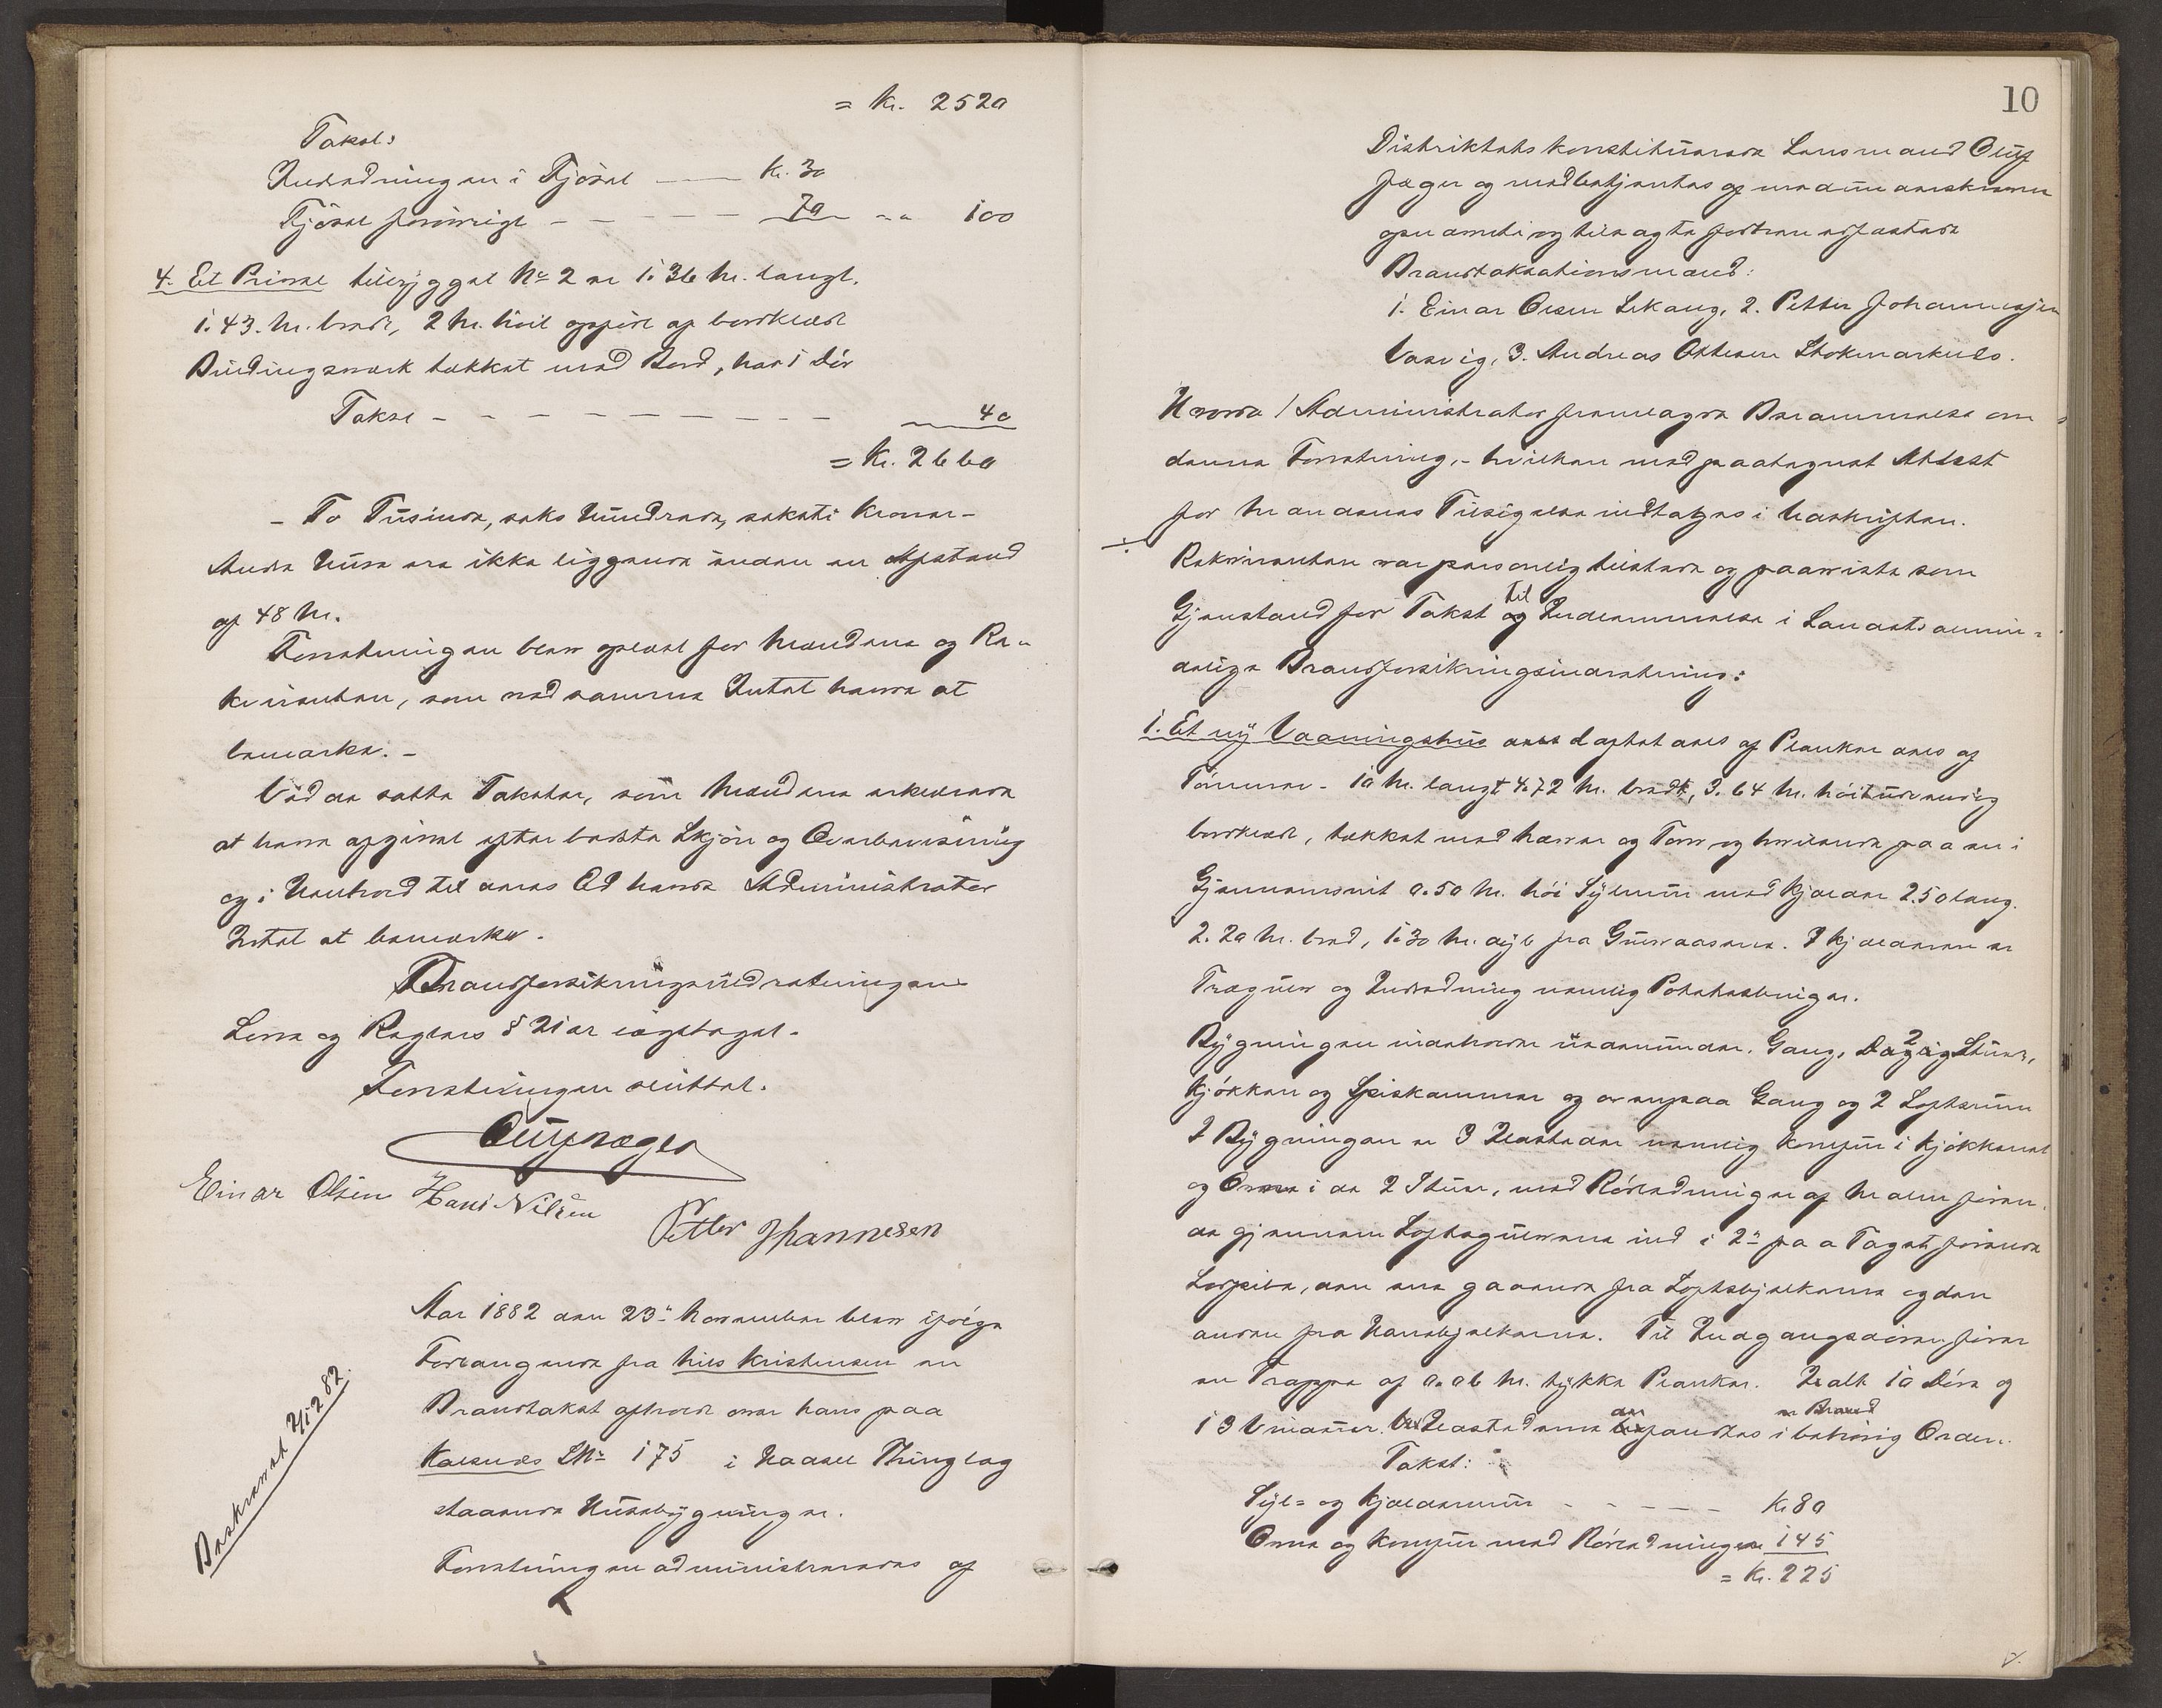 = Kr. 2520
Takst:
Indredningen i Fjöset — Kr. 30
Fjöset forövrigt - - - - - 70 " " 100
4. Et Privet tilbygget No 2 er 1.36 M. langt.
1.43. M. bredt, 2 M. höit opfört af bordklædt
Bindingsværk tækket med Bord, har 1 Dör
Takst - - - - - - - - - 40
= Kr. 2660
- To Tusinde, seks Hundrede, seksti Kroner -
Andre Huse ere ikke liggende inden en Afstand
af 48 M.
Forretningen blev oplæst for Mændene og Re-
kvirenten, som ved samme Intet havde at
bemærke. -
Ved de satte Takster, som Mændene erklærede
at have afgivet efter bedste Skjön og Overbevisning
og i Henhold til deres Ed havde Administrator
Intet at bemærke.
Brandforsikringsindretningens
Lovs og Reglers § 21 er iagttaget.
Forretningen sluttet.
Oluf Jæger
Einar Olsen Hans Nilsen
Petter Johannesen
Aar 1882 den 23de November blev ifölge
Forlangende fra Nils Kristensen en
Brandtakst afholdt over hans paa
Kalsnes LNo 175 i Hadsel Thinglag
staaende Husebygninger.
Beskrevet 2/12 82.
Forretningen administreredes af
10
Distriktets konstituerede Lensmand Oluf
Jæger og medbetjentes af medunderskrevne
opnævnte og til Sagte fortrin edfæstede
Brandtaksationsmænd:
1. Einar Olsen Lekang, 2. Petter Johannesen
Vasvig, 3. Andreas Ottesen Stokmarknes.
Hvorda / Administrator fremlagde Berammelse om
denne Forretning, - hvilken med paategnet Attest
for Mændenes Tilsigelse indtages i Udskriften.
÷
Rekvirenten var personlig tilstede og paaviste som
Gjenstand for Takst og til Indlemmelse i Landets almin-
delige Brandforsikringsindretning:
1. Et ny Vaaningshus dels af Planker dels af
Tömmer - 10 M. langt 4.72 M. bredt, 3.64 M. höit udvendig
bordklædt, tækket med Næver og Torv og hvilende paa en i
Gjennemsnit 0.50 M. höi Sylmur med Kjelder 2.50 lang.
2.20 M. bred, 1.30 M. dyb fra Gulvaasene. I Kjelderen er
Trægulv og Indredning nemlig Potetesbinger.
Bygningen indeholder nedenunder: Gang, 2 Stuer,
Kjökken og Spiskammer og ovenpaa Gang og 2 Loftsrum
I Bygningen er 3 Ildsteder nemlig Komfur i Kjökkenet
og Ovne i de 2 Stuer, med Rörledninger af Malm fören-
de gjennem Loftsgulvene ind i 2de paa Taget förende
Lerpiber, den ene gaaende fra Loftsbjelkerne og den
anden fra Hanebjelkerne. Til Indgangsdören förer
en Trappe af 0.06 M. tykke Planker. Ialt 10 Döre og
13 Vinduer. Ildstederne der er Brand befandtes i behörig Orden.
Takst:
Syl- og Kjeldermur - - - - - Kr 80
Ovne og Komfur med Rörledninger 145
= Kr. 225